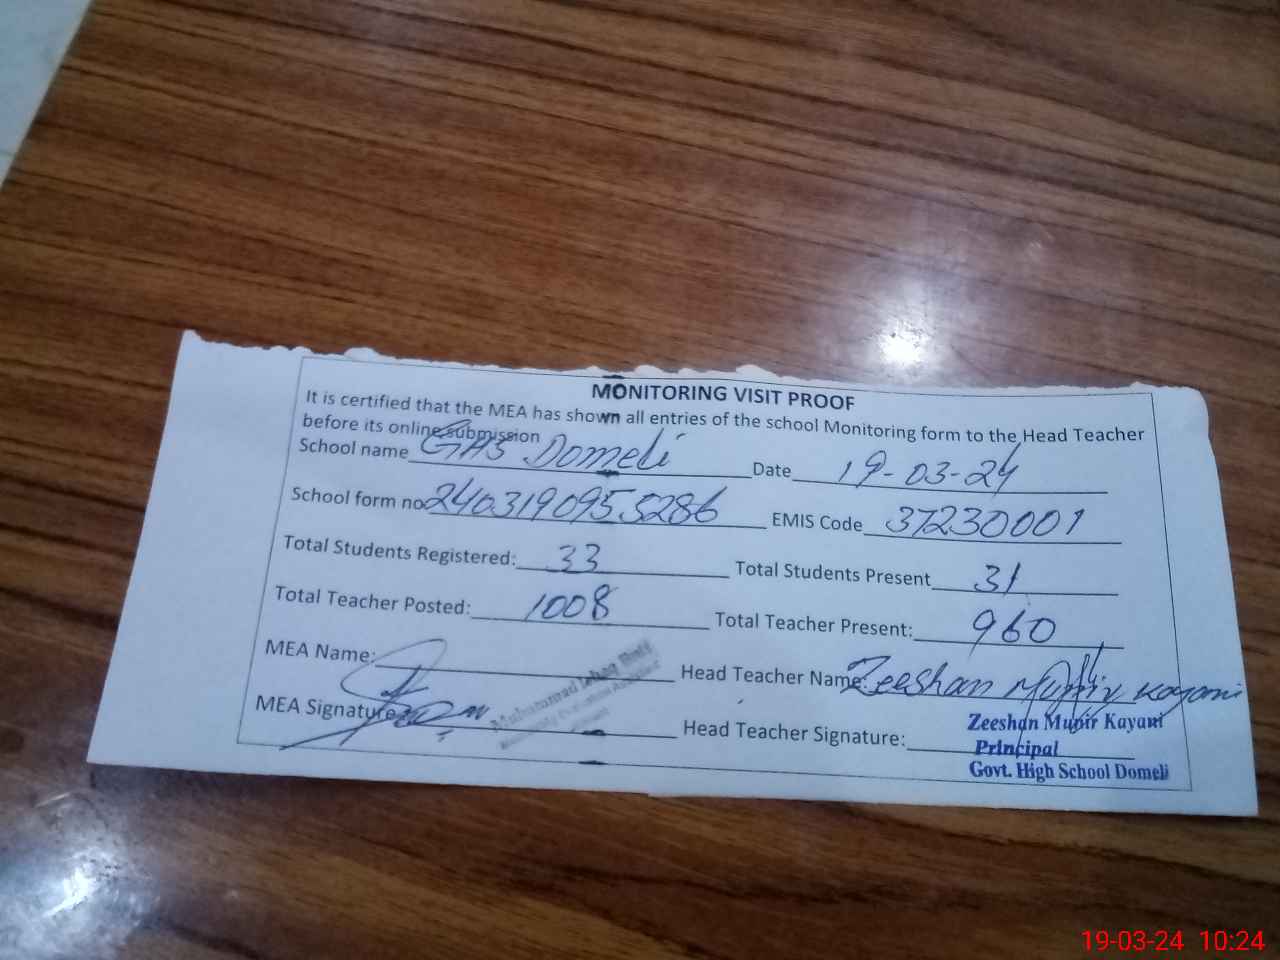 MONITORING VISIT PROOF
It is certified that the MEA has shown all entries of the school Monitoring form to the Head Teacher
before its online submission
School name GHS Domeli Date 19-03-24
School form no 2403190955286 EMIS Code 37230001
Total Students Registered: 33 Total Students Present 31
Total Teacher Posted: 1008 Total Teacher Present: 960
MEA Name: Head Teacher Name: Zeeshan Munir Kayani
MEA Signature Muhammad Head Teacher Signature:
Zeeshan Munir Kayani
Principal
Govt. High School Domeli
19-03-24 10:24